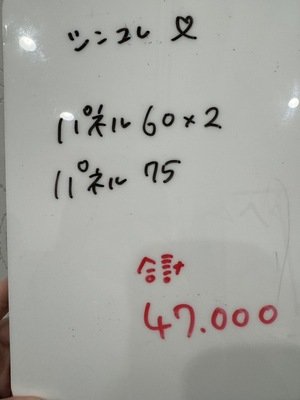 ツンコレ♡
パネル 60×2
パネル 75
合計
47.000